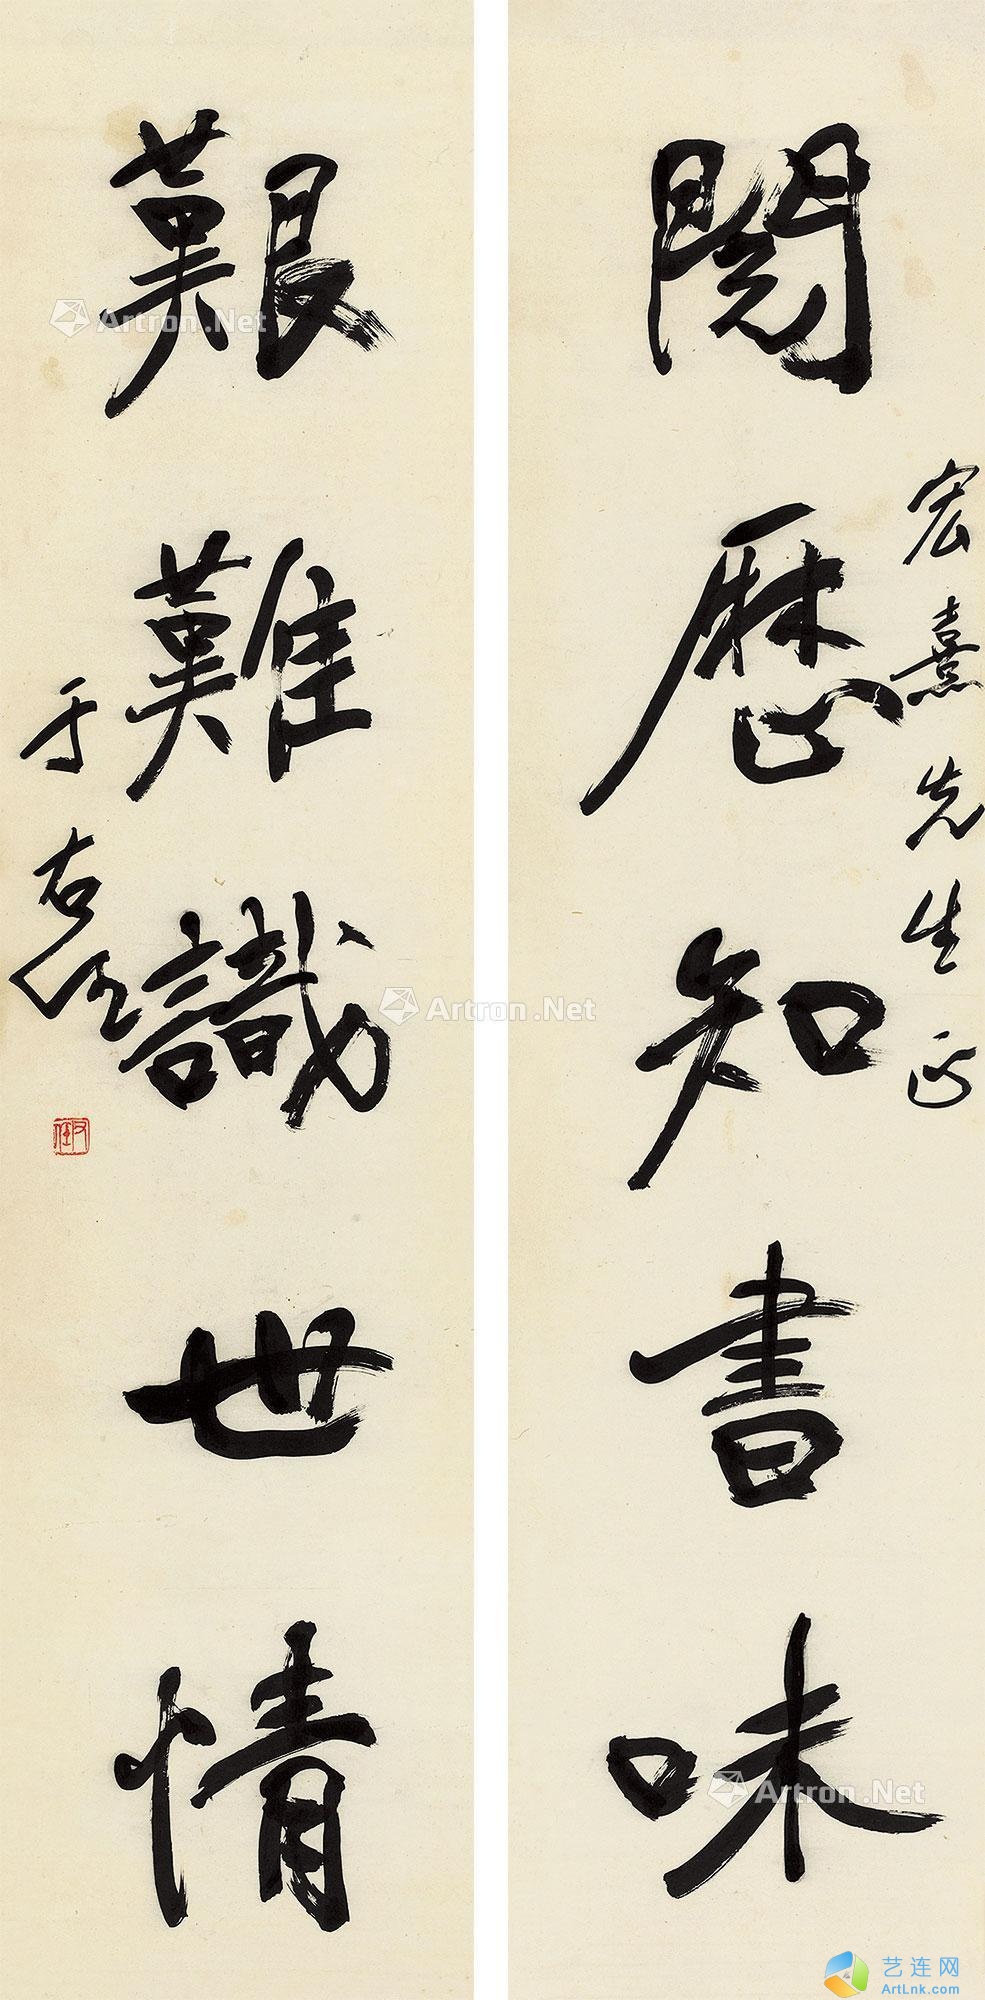 閱歷知書味
宏熹先生正
艱難識世情
于右任
右任
Artron.Net
Artron.Net
Artron.Net
艺连网
ArtLnk.com